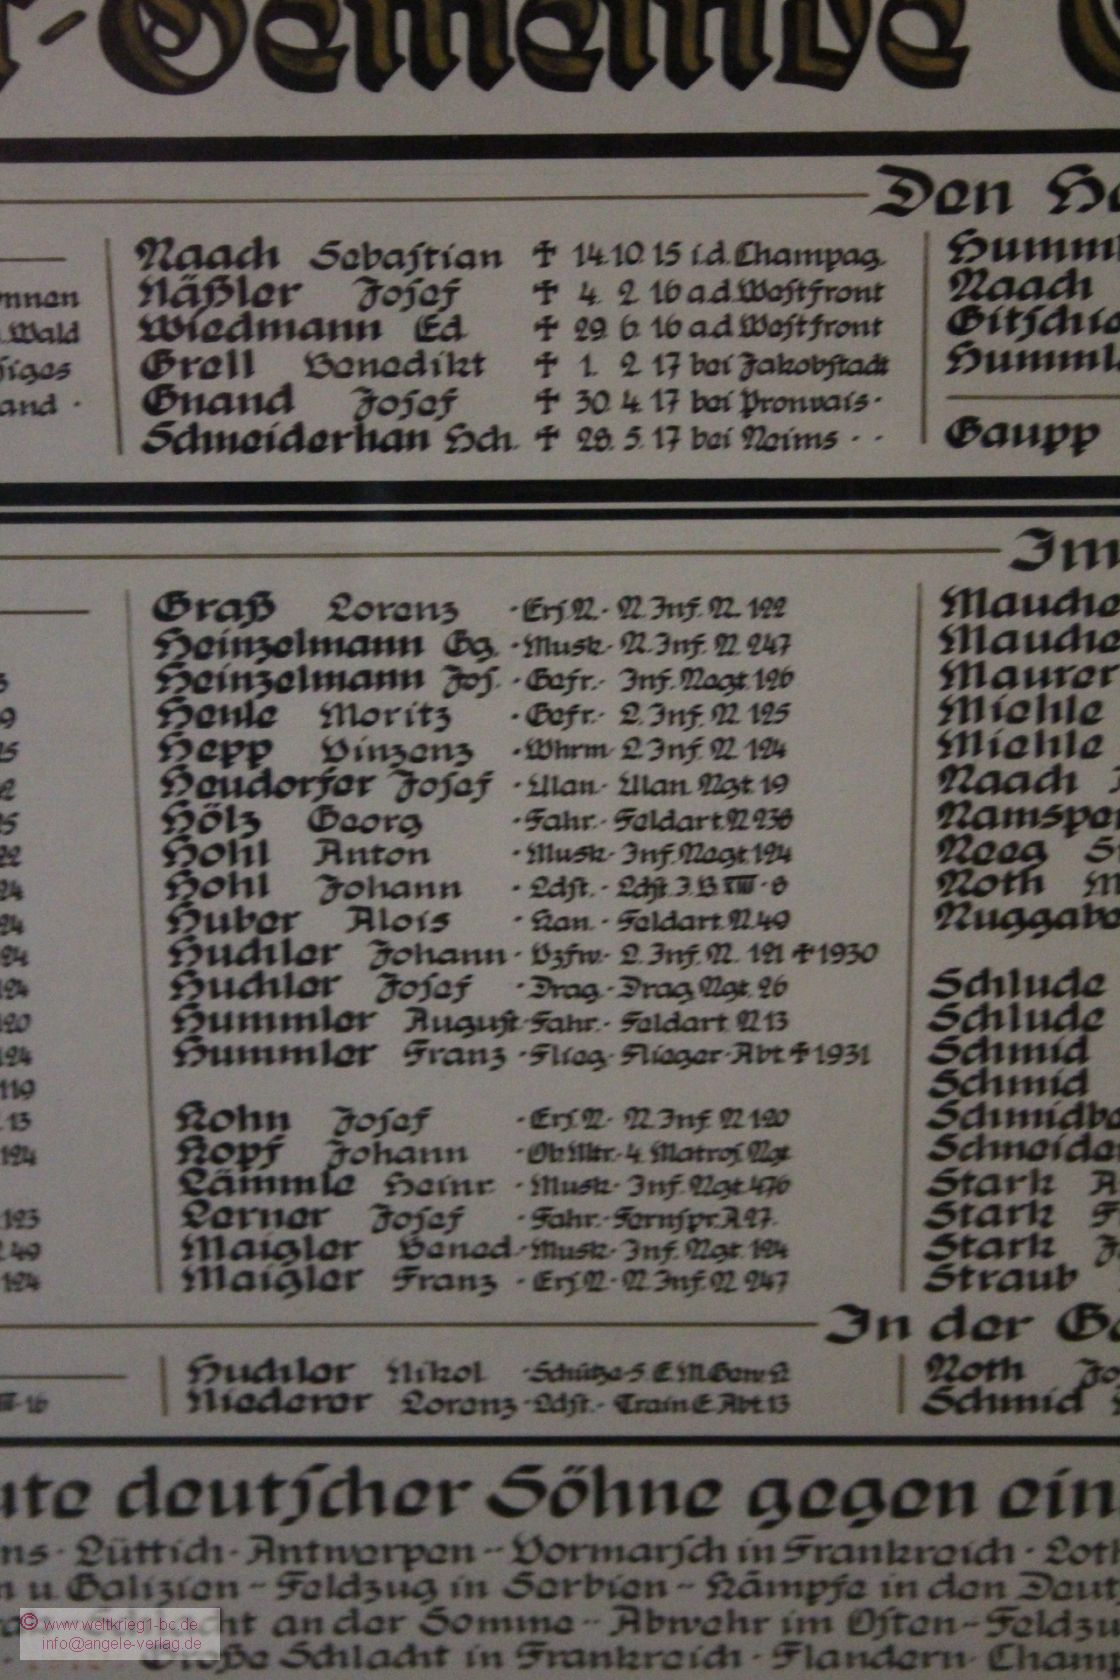 r-Gemeinde
Den He
Naach Sebastian ✝ 14.10.15 i.d.Champag.
Näßler Josef ✝ 4. 2. 16 a.d.Westfront
Wiedmann Ed. ✝ 29. 6. 16 a.d.Westfront
Grell Benedikt ✝ 1. 2. 17 bei Jakobstadt
Gnand Josef ✝ 30. 4. 17 bei Pronvais·
Schneiderhan Hch. ✝ 28. 5. 17 bei Reims · ·
nnen
Wald
siges
and ·
Humml
Naach
Gitschie
Humml
Gaupp
Im
Graß Lorenz · Ers.R. · R. Inf. R. 122
Heinzelmann Gg. · Musk. · R. Inf. R. 247
Heinzelmann Jos. · Gefr. · Inf. Regt. 126
Henle Moritz · Gefr. · L. Inf. R. 125
Hepp Vinzenz · Whrm · L. Inf. R. 124
Heudorfer Josef · Ulan · Ulan. Rgt. 19
Hölz Georg · Fahr. · Feldart.R. 238
Hohl Anton · Musk. · Inf. Regt. 124
Hohl Johann · Ldst. · Ldst. J. B. XIII · 8
Huber Alois · Kan. · Feldart. R. 49
Huchler Johann · Vzfw. · L. Inf. R. 121 ✝ 1930
Huchler Josef · Drag. · Drag. Rgt. 26
Hummler August · Fahr. · Feldart. R. 13
Hummler Franz · Flieg. · Flieger-Abt. ✝ 1931
Kohn Josef · Ers.R. · R. Inf. R. 120
Kopf Johann · Ob.Mtr. · 4. Matros. Rgt.
Lämmle Heinr. · Musk. · Inf. Rgt. 476
Lerner Josef · Fahr. · Fernspr. A. 27.
Maigler Bened. · Musk. · Inf. Rgt. 124
Maigler Franz · Ers.R. · R. Inf. R. 247
Mauche
Mauche
Maurer
Miehle
Miehle
Naach
Ramspe
Reeg
Roth
Ruggabe
Schlude
Schlude
Schmid
Schmid
Schmidbe
Schneider
Stark
Stark
Stark
Straub
In der Ge
Huchler Nikol. · Schütze · S. E. M. Gew. 2
Niederer Lorenz · Ldst. · Train E. Abt. 13
Roth
Schmid
ute deutscher Söhne gegen ein
ns · Lüttich · Antwerpen - Vormarsch in Frankreich · Loth
n u. Galizien - Feldzug in Serbien - Kämpfe in den Deut
ht an der Somme · Abwehr im Osten - Feldzu
Große Schlacht in Frankreich · Flandern · Champ
© www.weltkrieg1-bc.de
info@angele-verlag.de